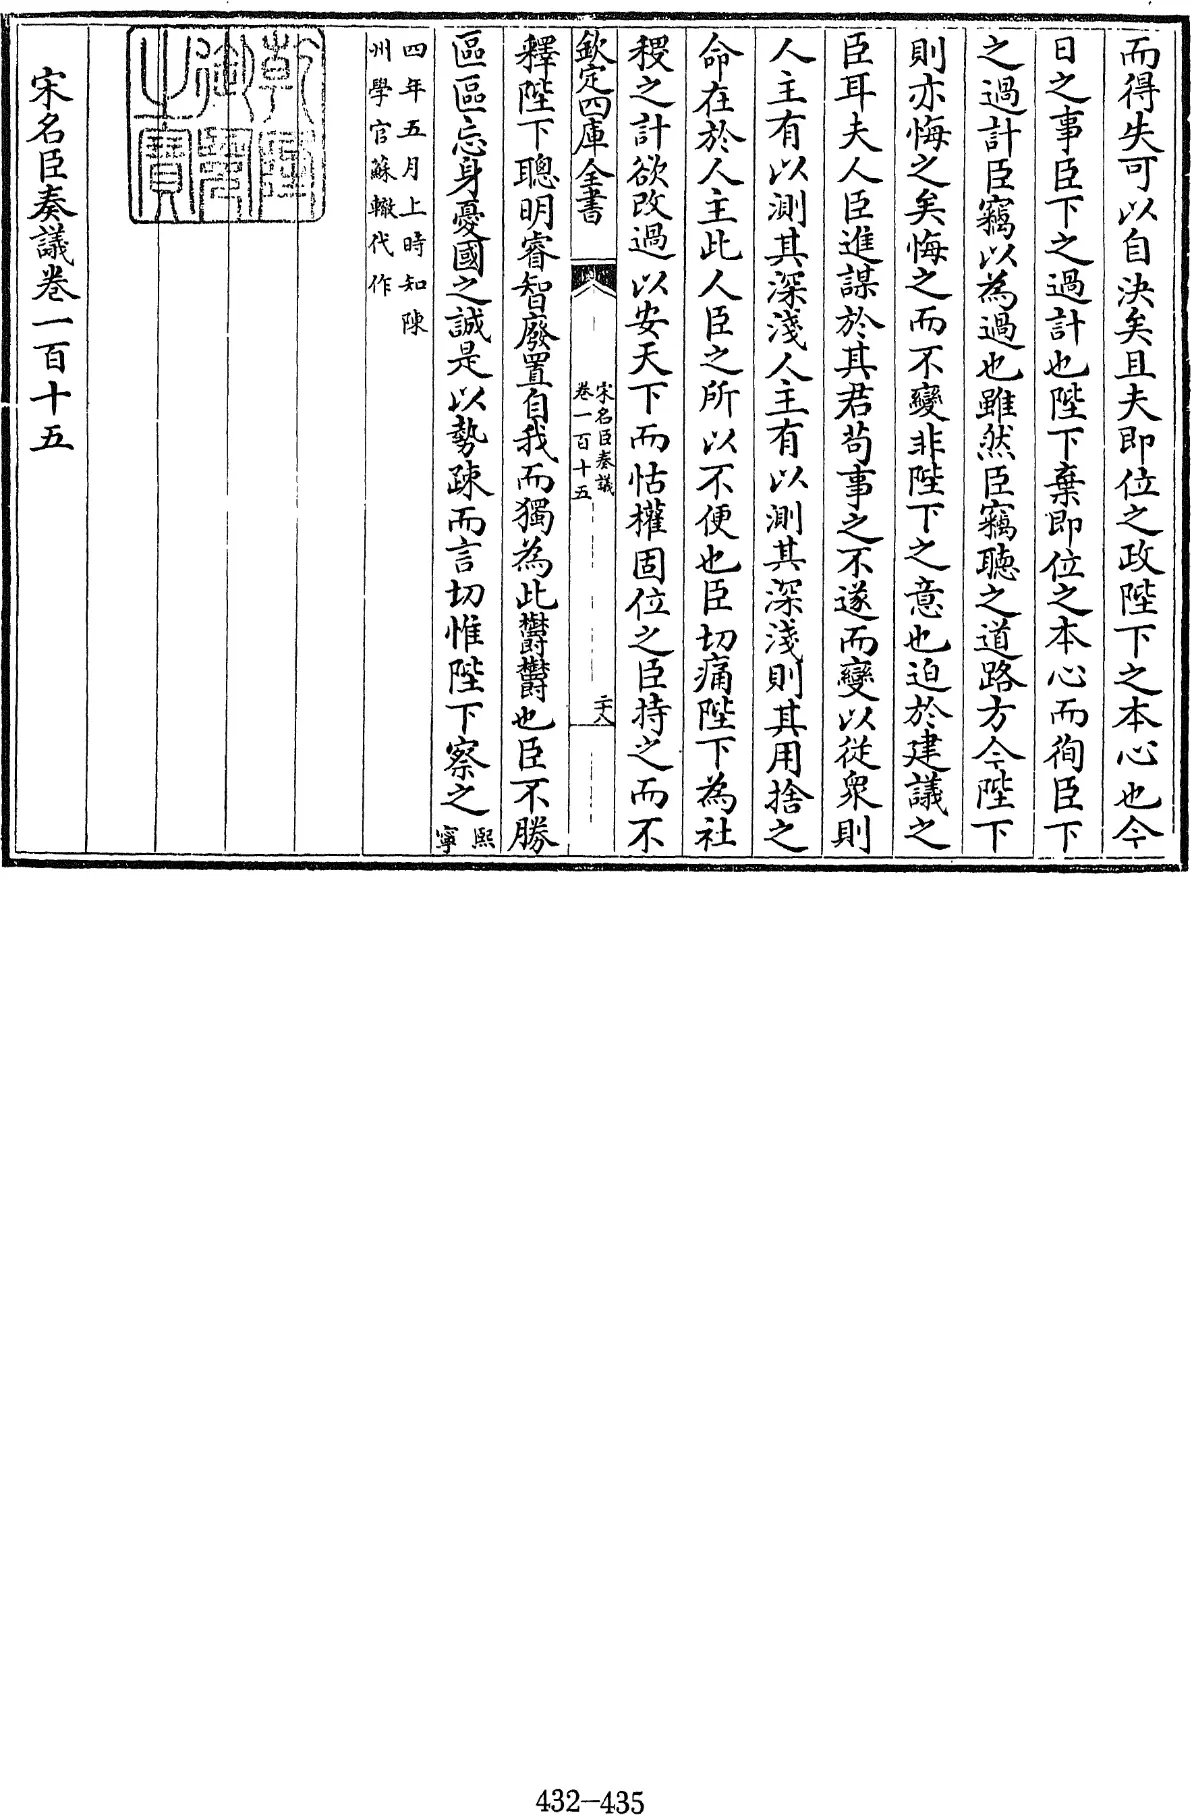 而得失可以自決矣且夫即位之政陛下之本心也今
日之事臣下之過計也陛下棄即位之本心而徇臣下
之過計臣竊以為過也雖然臣竊聽之道路方今陛下
則亦悔之矣悔之而不變非陛下之意也迫於建議之
臣耳夫人臣進謀於其君苟事之不遂而變以從衆則
人主有以測其深淺人主有以測其深淺則其用捨之
命在於人主此人臣之所以不便也臣切痛陛下為社
稷之計欲改過以安天下而怙權固位之臣持之而不
欽定四庫全書
宋名臣奏議
卷一百十五
二十八
釋陛下聰明睿智廢置自我而獨為此鬱鬱也臣不勝
區區忘身憂國之誠是以勢疎而言切惟陛下察之
熙
寧
四年五月上時知陳
州學官蘇轍代作
乾隆
御覽
之寶
宋名臣奏議卷一百十五
432-435